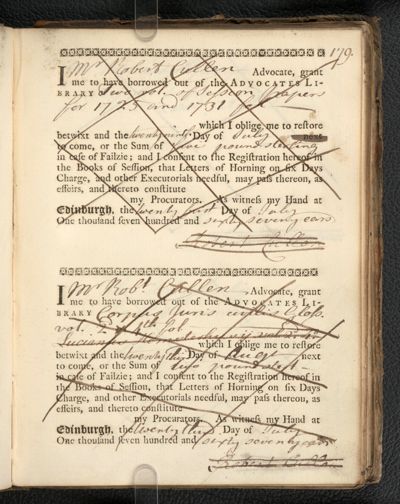 179.
I Mr Robert Cullen Advocate, grant
me to have borrowed out of the ADVOCATES LI-
BRARY two vol. of Session papers
for 1725 and 1731
which I oblige me to restore
betwixt and the twenty ninth Day of July next
to come, or the Sum of five pound sterling
in case of Failzie; and I consent to the Registration hereof in
the Books of Session, that Letters of Horning on six Days
Charge, and other Executorials needful, may pass thereon, as
effeirs, and thereto constitute
my Procurators. As witness my Hand at
Edinburgh, the twenty first Day of July
One thousand seven hundred and sixty seven years
Robert Cullen
I Mr Robt. Cullen Advocate, grant
me to have borrowed out of the ADVOCATES LI-
BRARY Corpus Juris civilis Gloss.
vol. fol.
which I oblige me to restore
betwixt and the twenty third Day of Augt next
to come, or the Sum of two pound sterl
in case of Failzie; and I consent to the Registration hereof in
the Books of Session, that Letters of Horning on six Days
Charge, and other Executorials needful, may pass thereon, as
effeirs, and thereto constitute
my Procurators. As witness my Hand at
Edinburgh, the twenty third Day of July
One thousand seven hundred and sixty seven years
Robert Cullen